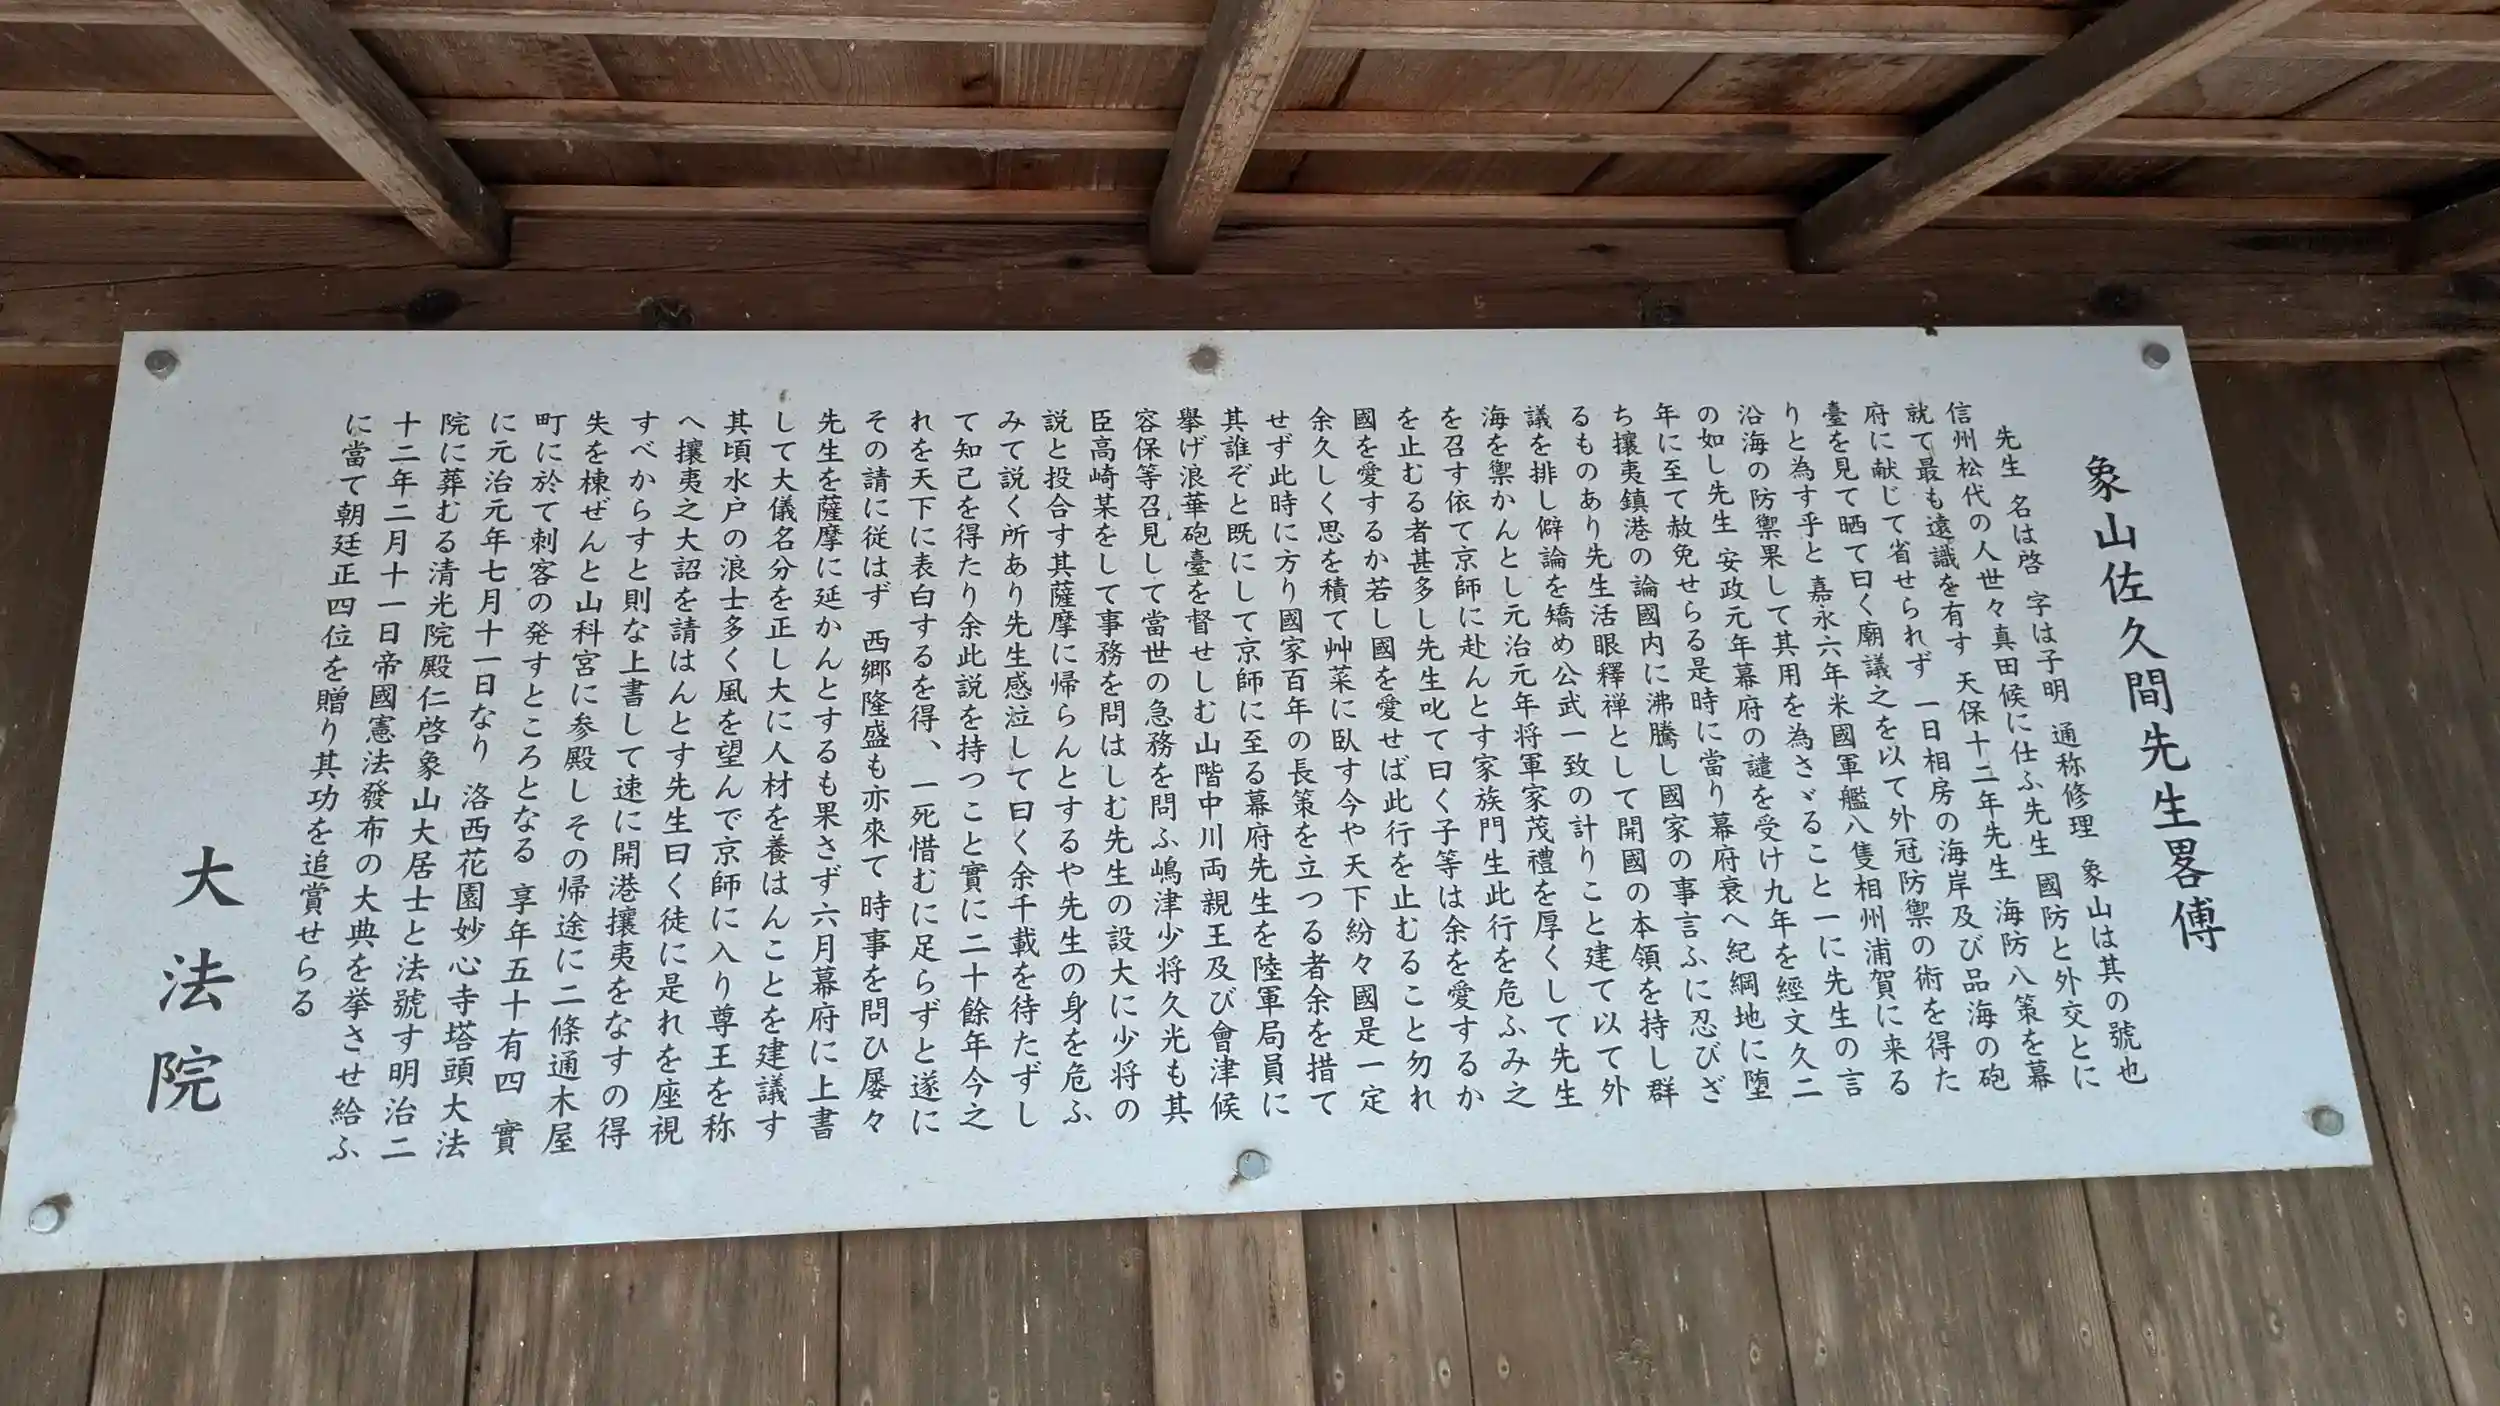 象山佐久間先生畧傳
先生 名は啓 字は子明 通称修理 象山は其の號也
信州松代の人世々真田候に仕ふ先生 國防と外交とに
就て最も遠識を有す 天保十二年先生 海防八策を幕
府に献じて省せられず 一日相房の海岸及び品海の砲
臺を見て晒て曰く廟議之を以て外冠防禦の術を得た
りと為す乎と 嘉永六年米國軍艦八隻相州浦賀に来る
沿海の防禦果して其用を為さゞること一に先生の言
の如し先生 安政元年幕府の譴を受け九年を經文久二
年に至て赦免せらる是時に當り幕府衰へ紀綱地に堕
ち攘夷鎮港の論國内に沸騰し國家の事言ふに忍びざ
るものあり先生活眼釋禅として開國の本領を持し群
議を排し僻論を矯め公武一致の計りこと建て以て外
海を禦かんとし元治元年将軍家茂禮を厚くして先生
を召す依て京師に赴んとす家族門生此行を危ふみ之
を止むる者甚多し先生叱て曰く子等は余を愛するか
國を愛するか若し國を愛せば此行を止むること勿れ
余久しく思を積て艸菜に臥す今や天下紛々國是一定
せず此時に方り國家百年の長策を立つる者余を措て
其誰ぞと既にして京師に至る幕府先生を陸軍局員に
擧げ浪華砲臺を督せしむ山階中川両親王及び會津候
容保等召見して當世の急務を問ふ嶋津少将久光も其
臣高崎某をして事務を問はしむ先生の設大に少将の
説と投合す其薩摩に帰らんとするや先生の身を危ふ
みて説く所あり先生感泣して曰く余千載を待たずし
て知己を得たり余此説を持つこと實に二十餘年今之
れを天下に表白するを得、一死惜むに足らずと遂に
その請に従はず 西郷隆盛も亦來て 時事を問ひ屡々
先生を薩摩に延かんとするも果さず六月幕府に上書
して大儀名分を正し大に人材を養はんことを建議す
其頃水戸の浪士多く風を望んで京師に入り尊王を称
へ攘夷之大詔を請はんとす先生曰く徒に是れを座視
すべからすと則な上書して速に開港攘夷をなすの得
失を棟ぜんと山科宮に参殿しその帰途に二條通木屋
町に於て刺客の発すところとなる 享年五十有四 實
に元治元年七月十一日なり 洛西花園妙心寺塔頭大法
院に葬むる清光院殿仁啓象山大居士と法號す明治二
十二年二月十一日帝國憲法發布の大典を挙させ給ふ
に當て朝廷正四位を贈り其功を追賞せらる
大法院